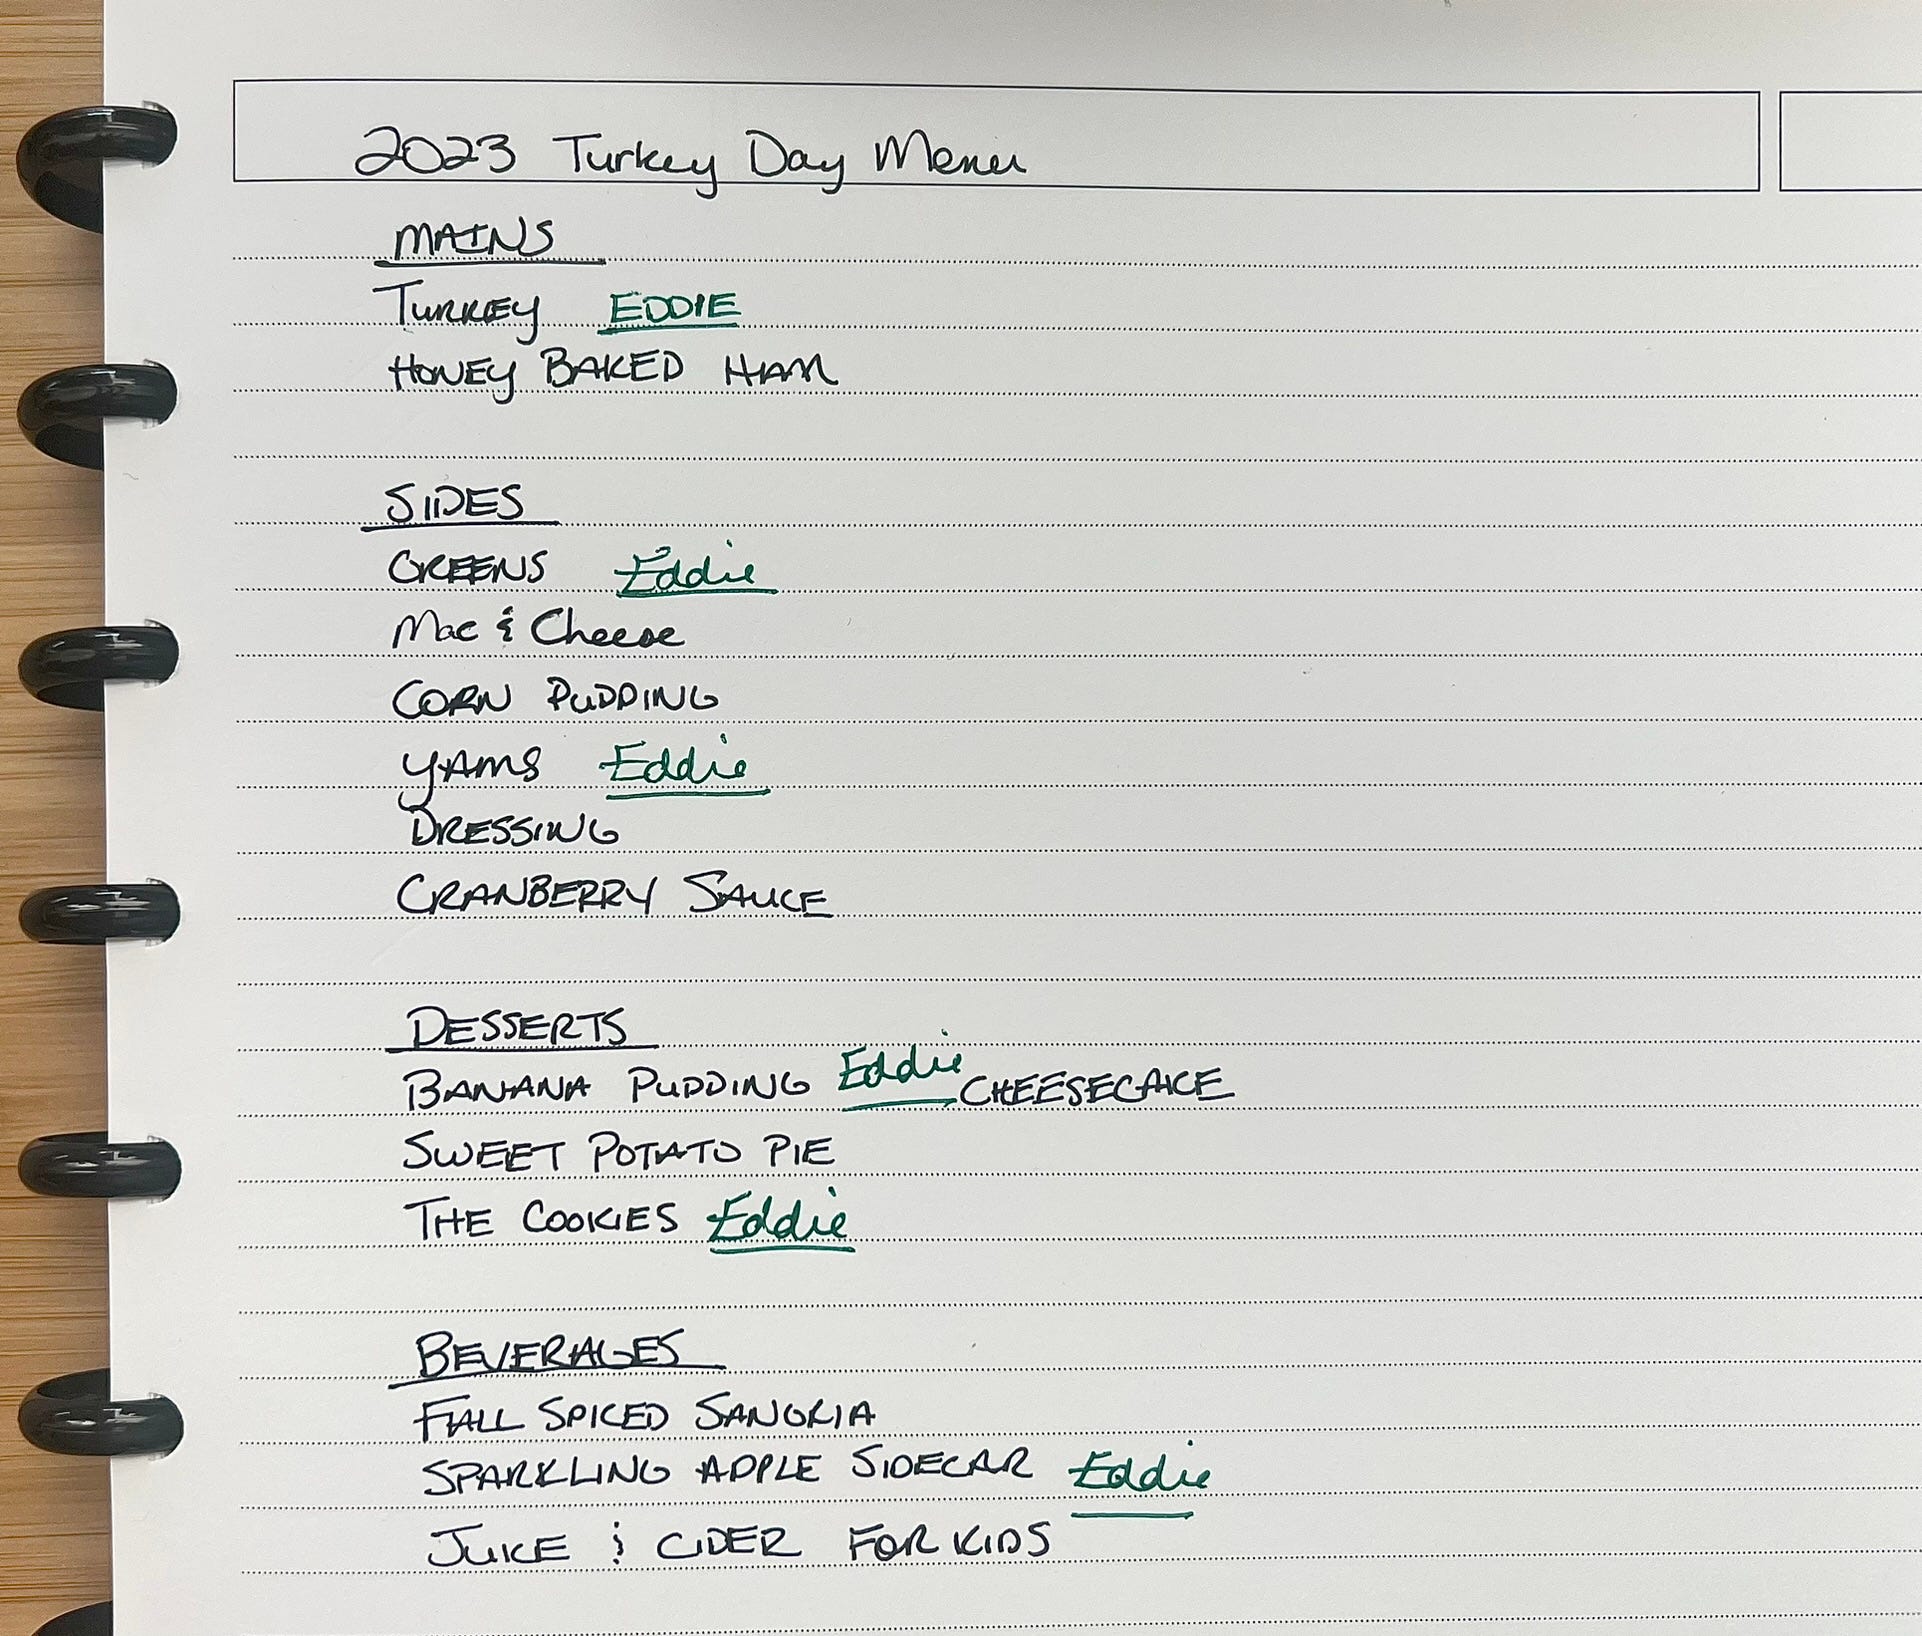 2023 Turkey Day Menu
MAINS
TURKEY EDDIE
HONEY BAKED HAM
SIDES
GREENS Eddie
Mac & Cheese
CORN PUDDING
YAMS Eddie
DRESSING
CRANBERRY SAUCE
DESSERTS
BANANA PUDDING Eddie CHEESECAKE
SWEET POTATO PIE
THE COOKIES Eddie
BEVERAGES
FALL SPICED SANGRIA
SPARKLING APPLE SIDECAR Eddie
JUICE & CIDER FOR KIDS